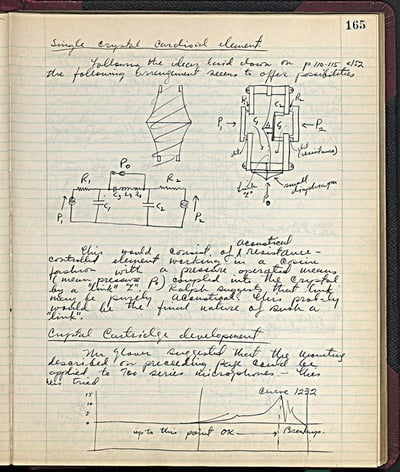 165
Single crystal cardioid element
Following the ideas laid down on p 110-115 & 152
the following arrangement seems to offer possibilities
P1
P2
P0
small diaphragm
slit (resistance)
link "Z"
P0
R1
R2
C1
C2
P1
P2
This would consist of acoustical resistance -
controlled element working in a cosine
fashion with a pressure operated means
(mean pressure P0) coupled into the crystal
by a "link" "Z". Ralph suggests that link
may be purely acoustical. This probly
would be the final nature of such a
"link".
Crystal Cartridge development
Mr Glover suggested that the mounting
described on preceeding page could be
applied to 700 series microphones. - this
was tried
Curve 1232
15
10
5
0
up to this point OK
Breakup.